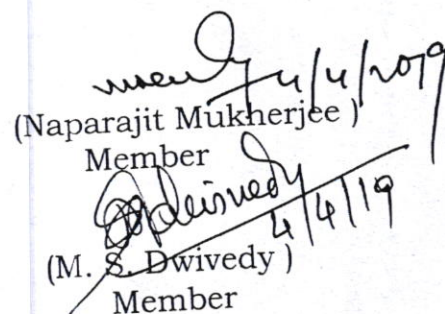 4/4/2019
(Naparajit Mukherjee )
Member
4/4/19
(M. S. Dwivedy )
Member